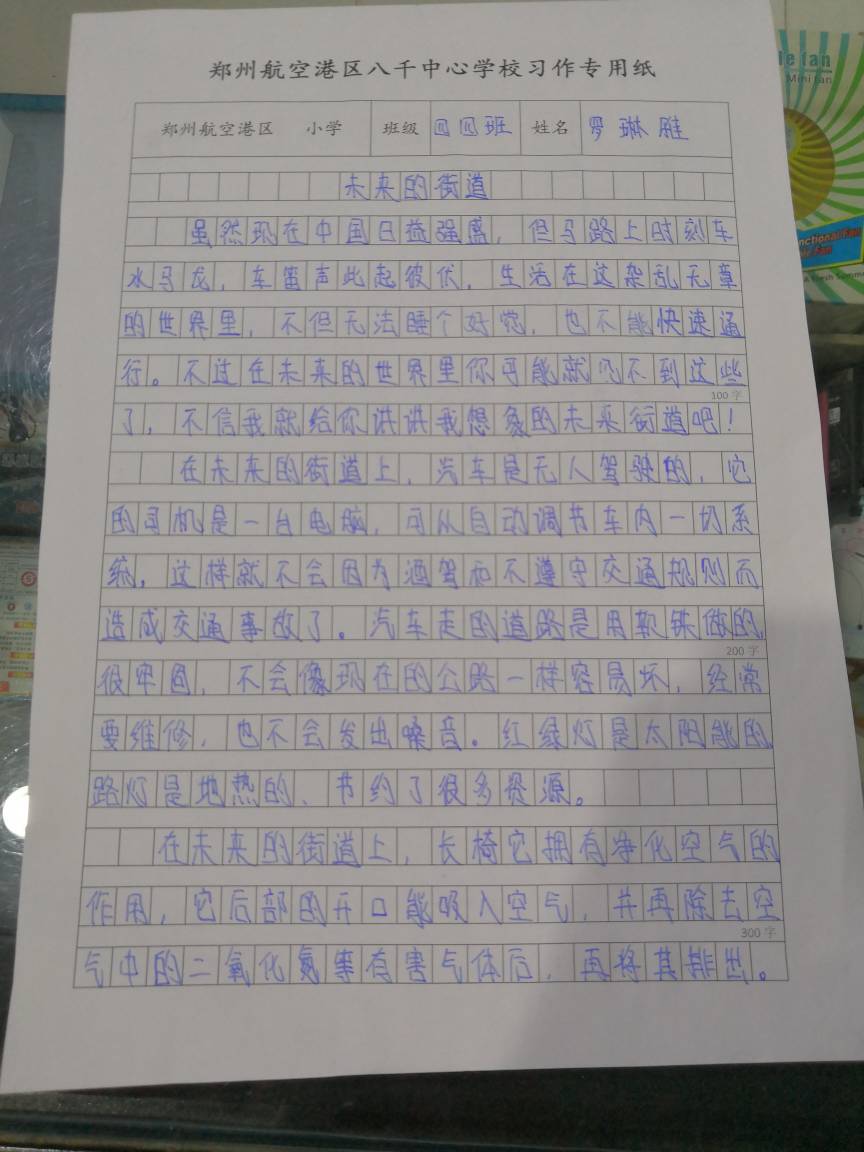 郑州航空港区八千中心学校习作专用纸
郑州航空港区 小学 班级 四四班 姓名 罗琳雅
未来的街道
虽然现在中国日益强盛，但马路上时刻车
水马龙，车笛声此起彼伏，生活在这杂乱无章
的世界里，不但无法睡个好觉，也不能快速通
行。不过在未来的世界里你可能就见不到这些
100字
了，不信我就给你讲讲我想象的未来街道吧！
在未来的街道上，汽车是无人驾驶的，它
的司机是一台电脑，可从自动调节车内一切系
统，这样就不会因为酒驾和不遵守交通规则而
造成交通事故了。汽车走的道路是用软铁做的，
200字
很牢固，不会像现在的公路一样容易坏，经常
要维修，也不会发出噪音。红绿灯是太阳能的
路灯是地热的、节约了很多资源。
在未来的街道上，长椅它拥有净化空气的
作用，它后部的开口能吸入空气，并再除去空
300字
气中的二氧化氮等有害气体后，再将其排出。
le fan
Mini fan
nctional Fan